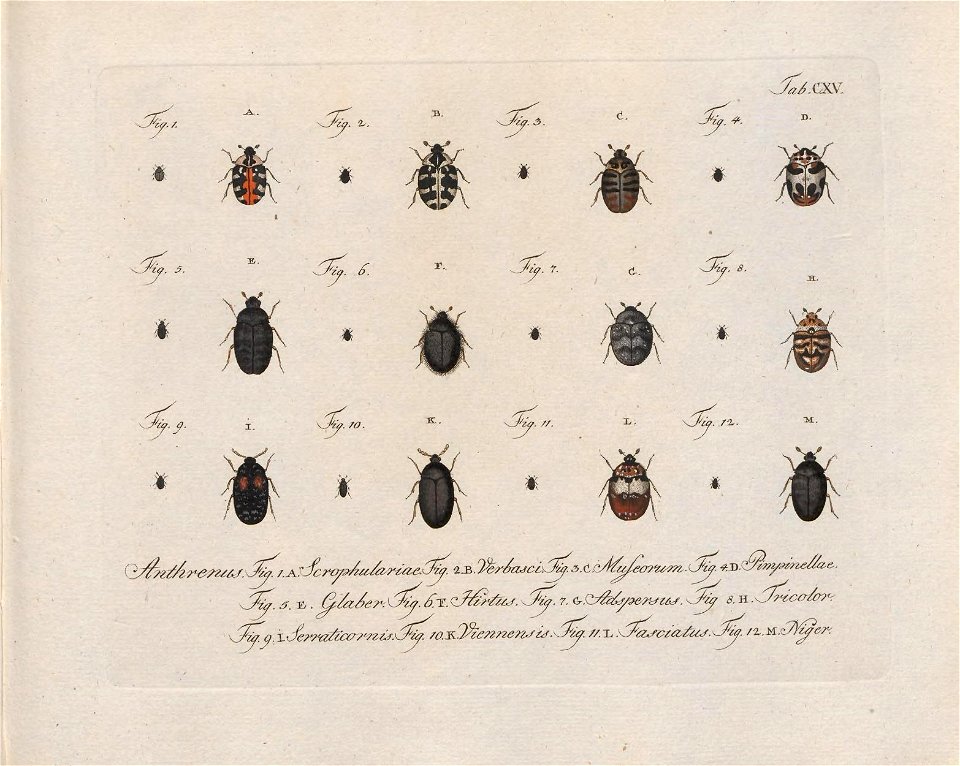 Tab. CXV.
Fig. 1. A. Fig. 2. B. Fig. 3. C. Fig. 4. D.
Fig. 5. E. Fig. 6. F. Fig. 7. G. Fig. 8. H.
Fig. 9. I. Fig. 10. K. Fig. 11. L. Fig. 12. M.
Anthrenus. Fig. 1. A. Scrophulariae. Fig. 2. B. Verbasci. Fig. 3. C. Muſeorum. Fig. 4. D. Pimpinellae.
Fig. 5. E. Glaber. Fig. 6. F. Hirtus. Fig. 7. G. Adspersus. Fig. 8. H. Tricolor.
Fig. 9. I. Serraticornis. Fig. 10. K. Viennensis. Fig. 11. L. Fasciatus. Fig. 12. M. Niger.